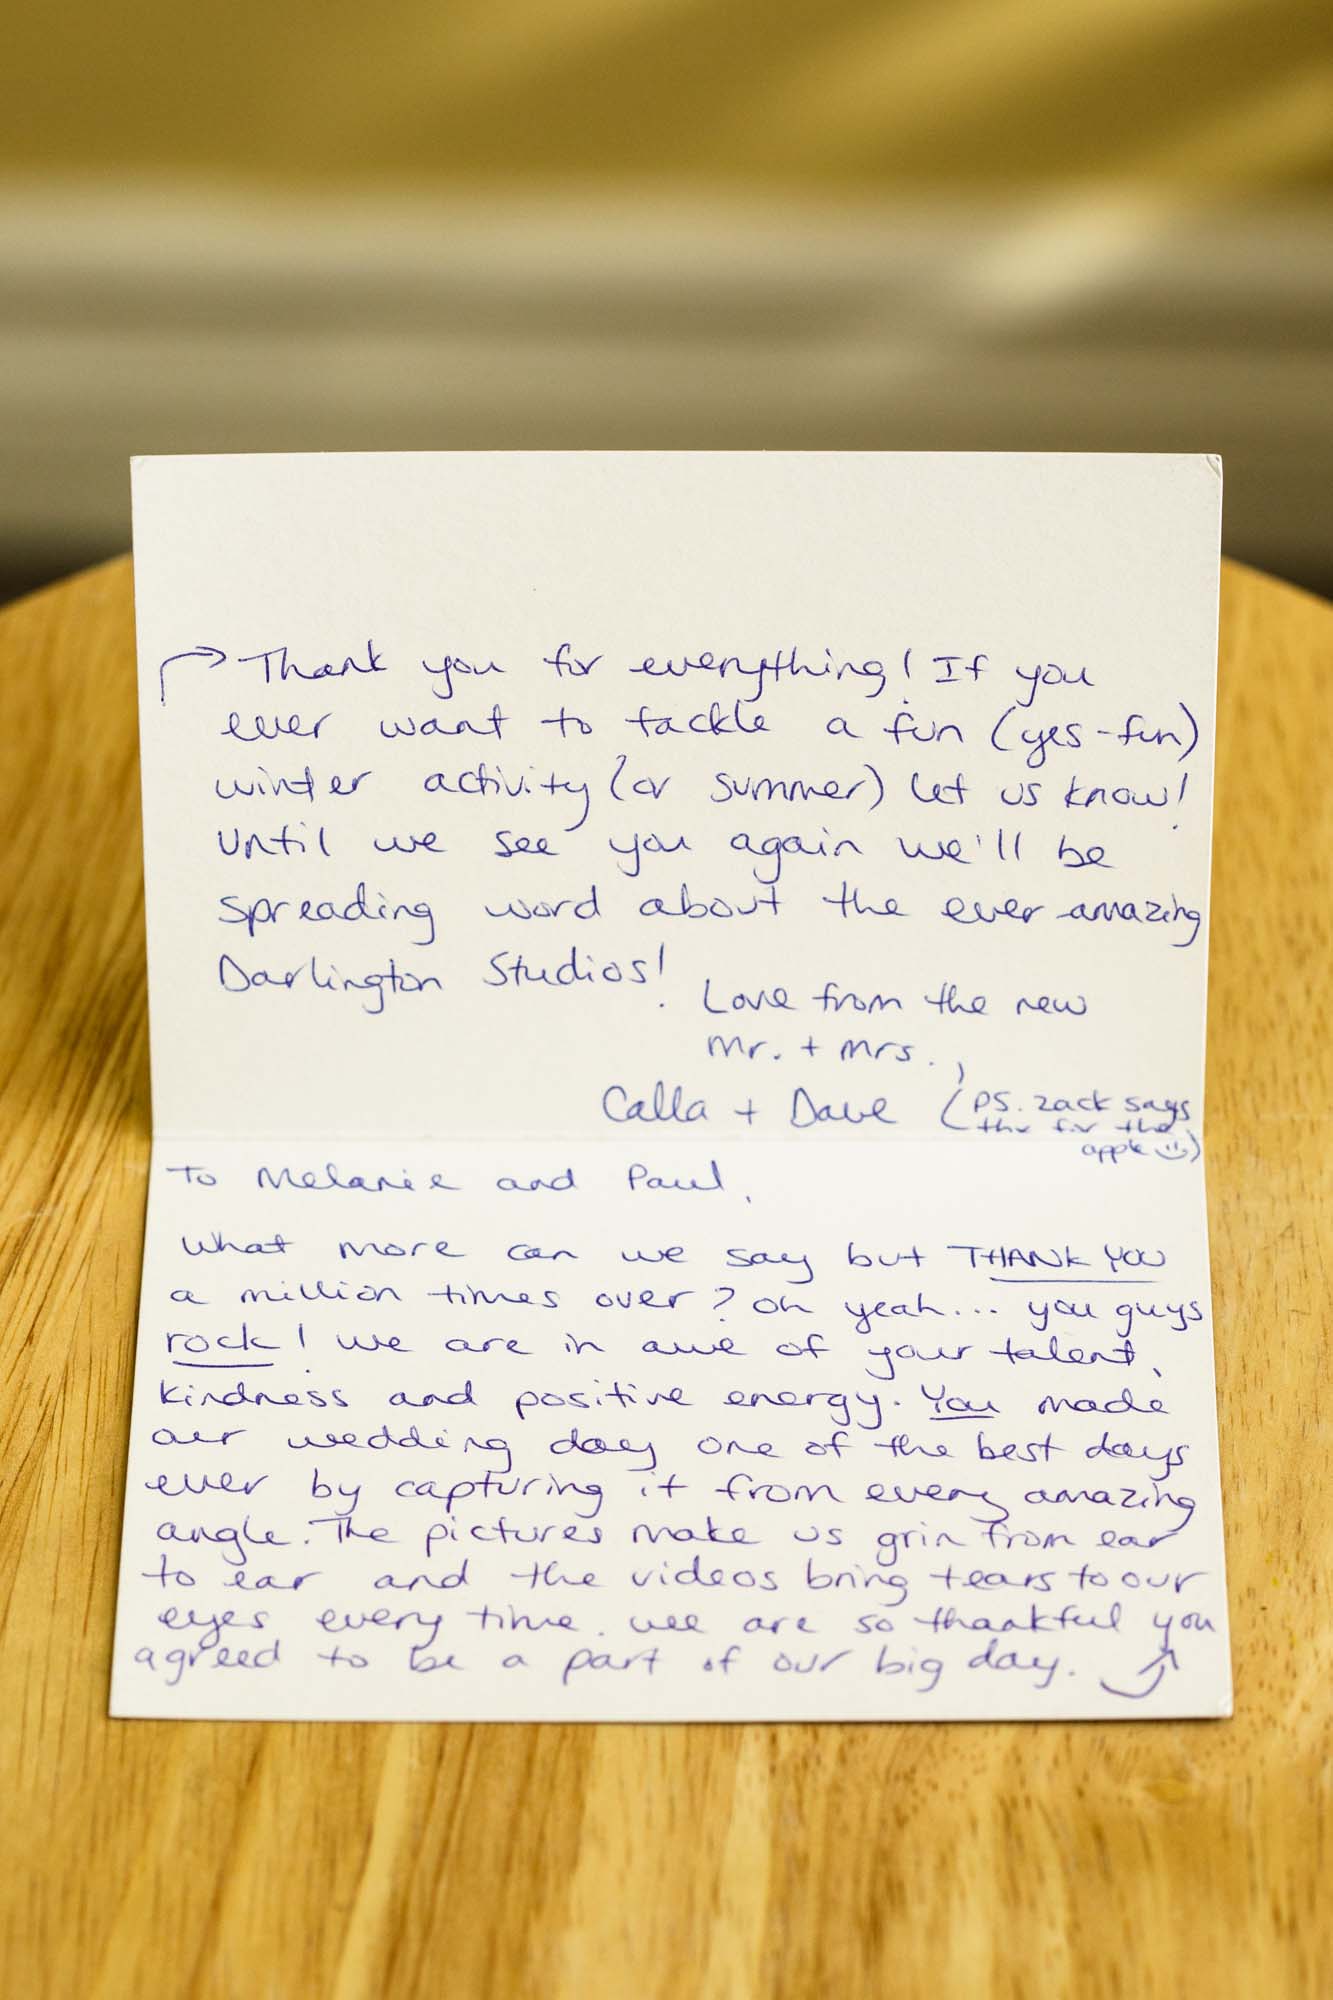 To Melanie and Paul,
What more can we say but THANK YOU
a million times over? oh yeah... you guys
rock! we are in awe of your talent,
kindness and positive energy. You made
our wedding day one of the best days
ever by capturing it from every amazing
angle. The pictures make us grin from ear
to ear and the videos bring tears to our
eyes every time. we are so thankful you
agreed to be a part of our big day.
Thank you for everything! If you
ever want to tackle a fun (yes-fun)
winter activity (or summer) let us know!
Until we see you again we'll be
spreading word about the ever-amazing
Darlington Studios!
Love from the new
Mr. + Mrs.,
Calla + Dave
(PS. Zack says
thx for the
apple ☺)